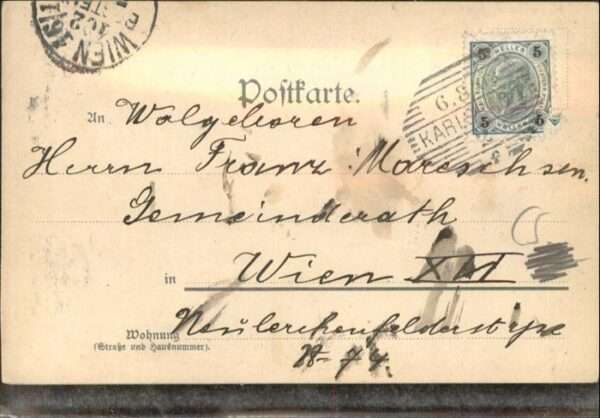 WIEN 16/1
Postkarte.
5 HELLER 5
5 HELLER 5
6.8
KARLS
An Wolgeboren
Herrn Franz Mareschsen.
Gemeinderath
in Wien XVI
Wohnung
(Straße und Hausnummer).
Neulerchenfelderstrße
N- 74.